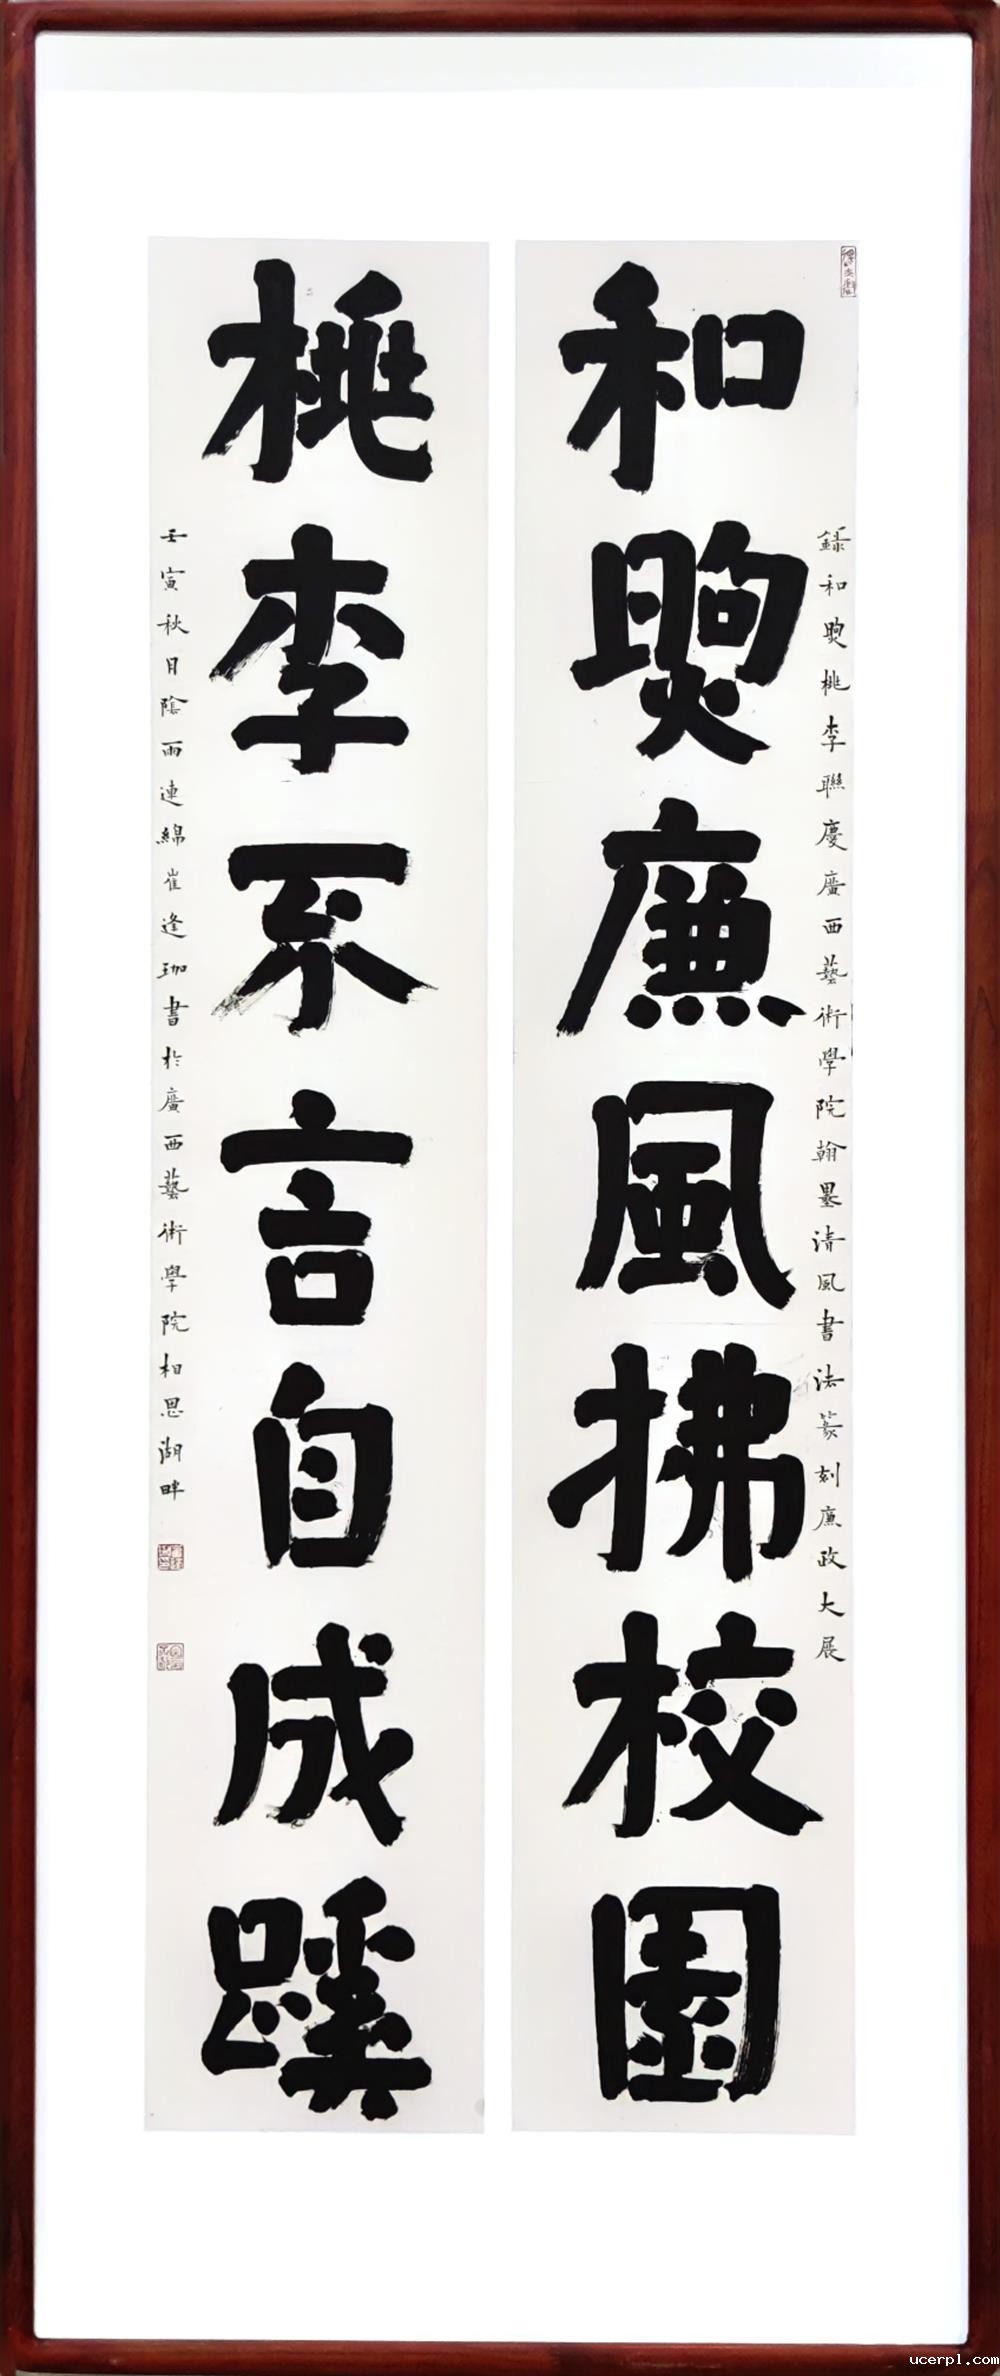 錄和煦桃李聯慶廣西藝術學院翰墨清風書法篆刻廉政大展
和煦廉風拂校園
桃李不言自成蹊
壬寅秋月陰雨連綿崔逢珈書於廣西藝術學院相思湖畔
ucerpl.com